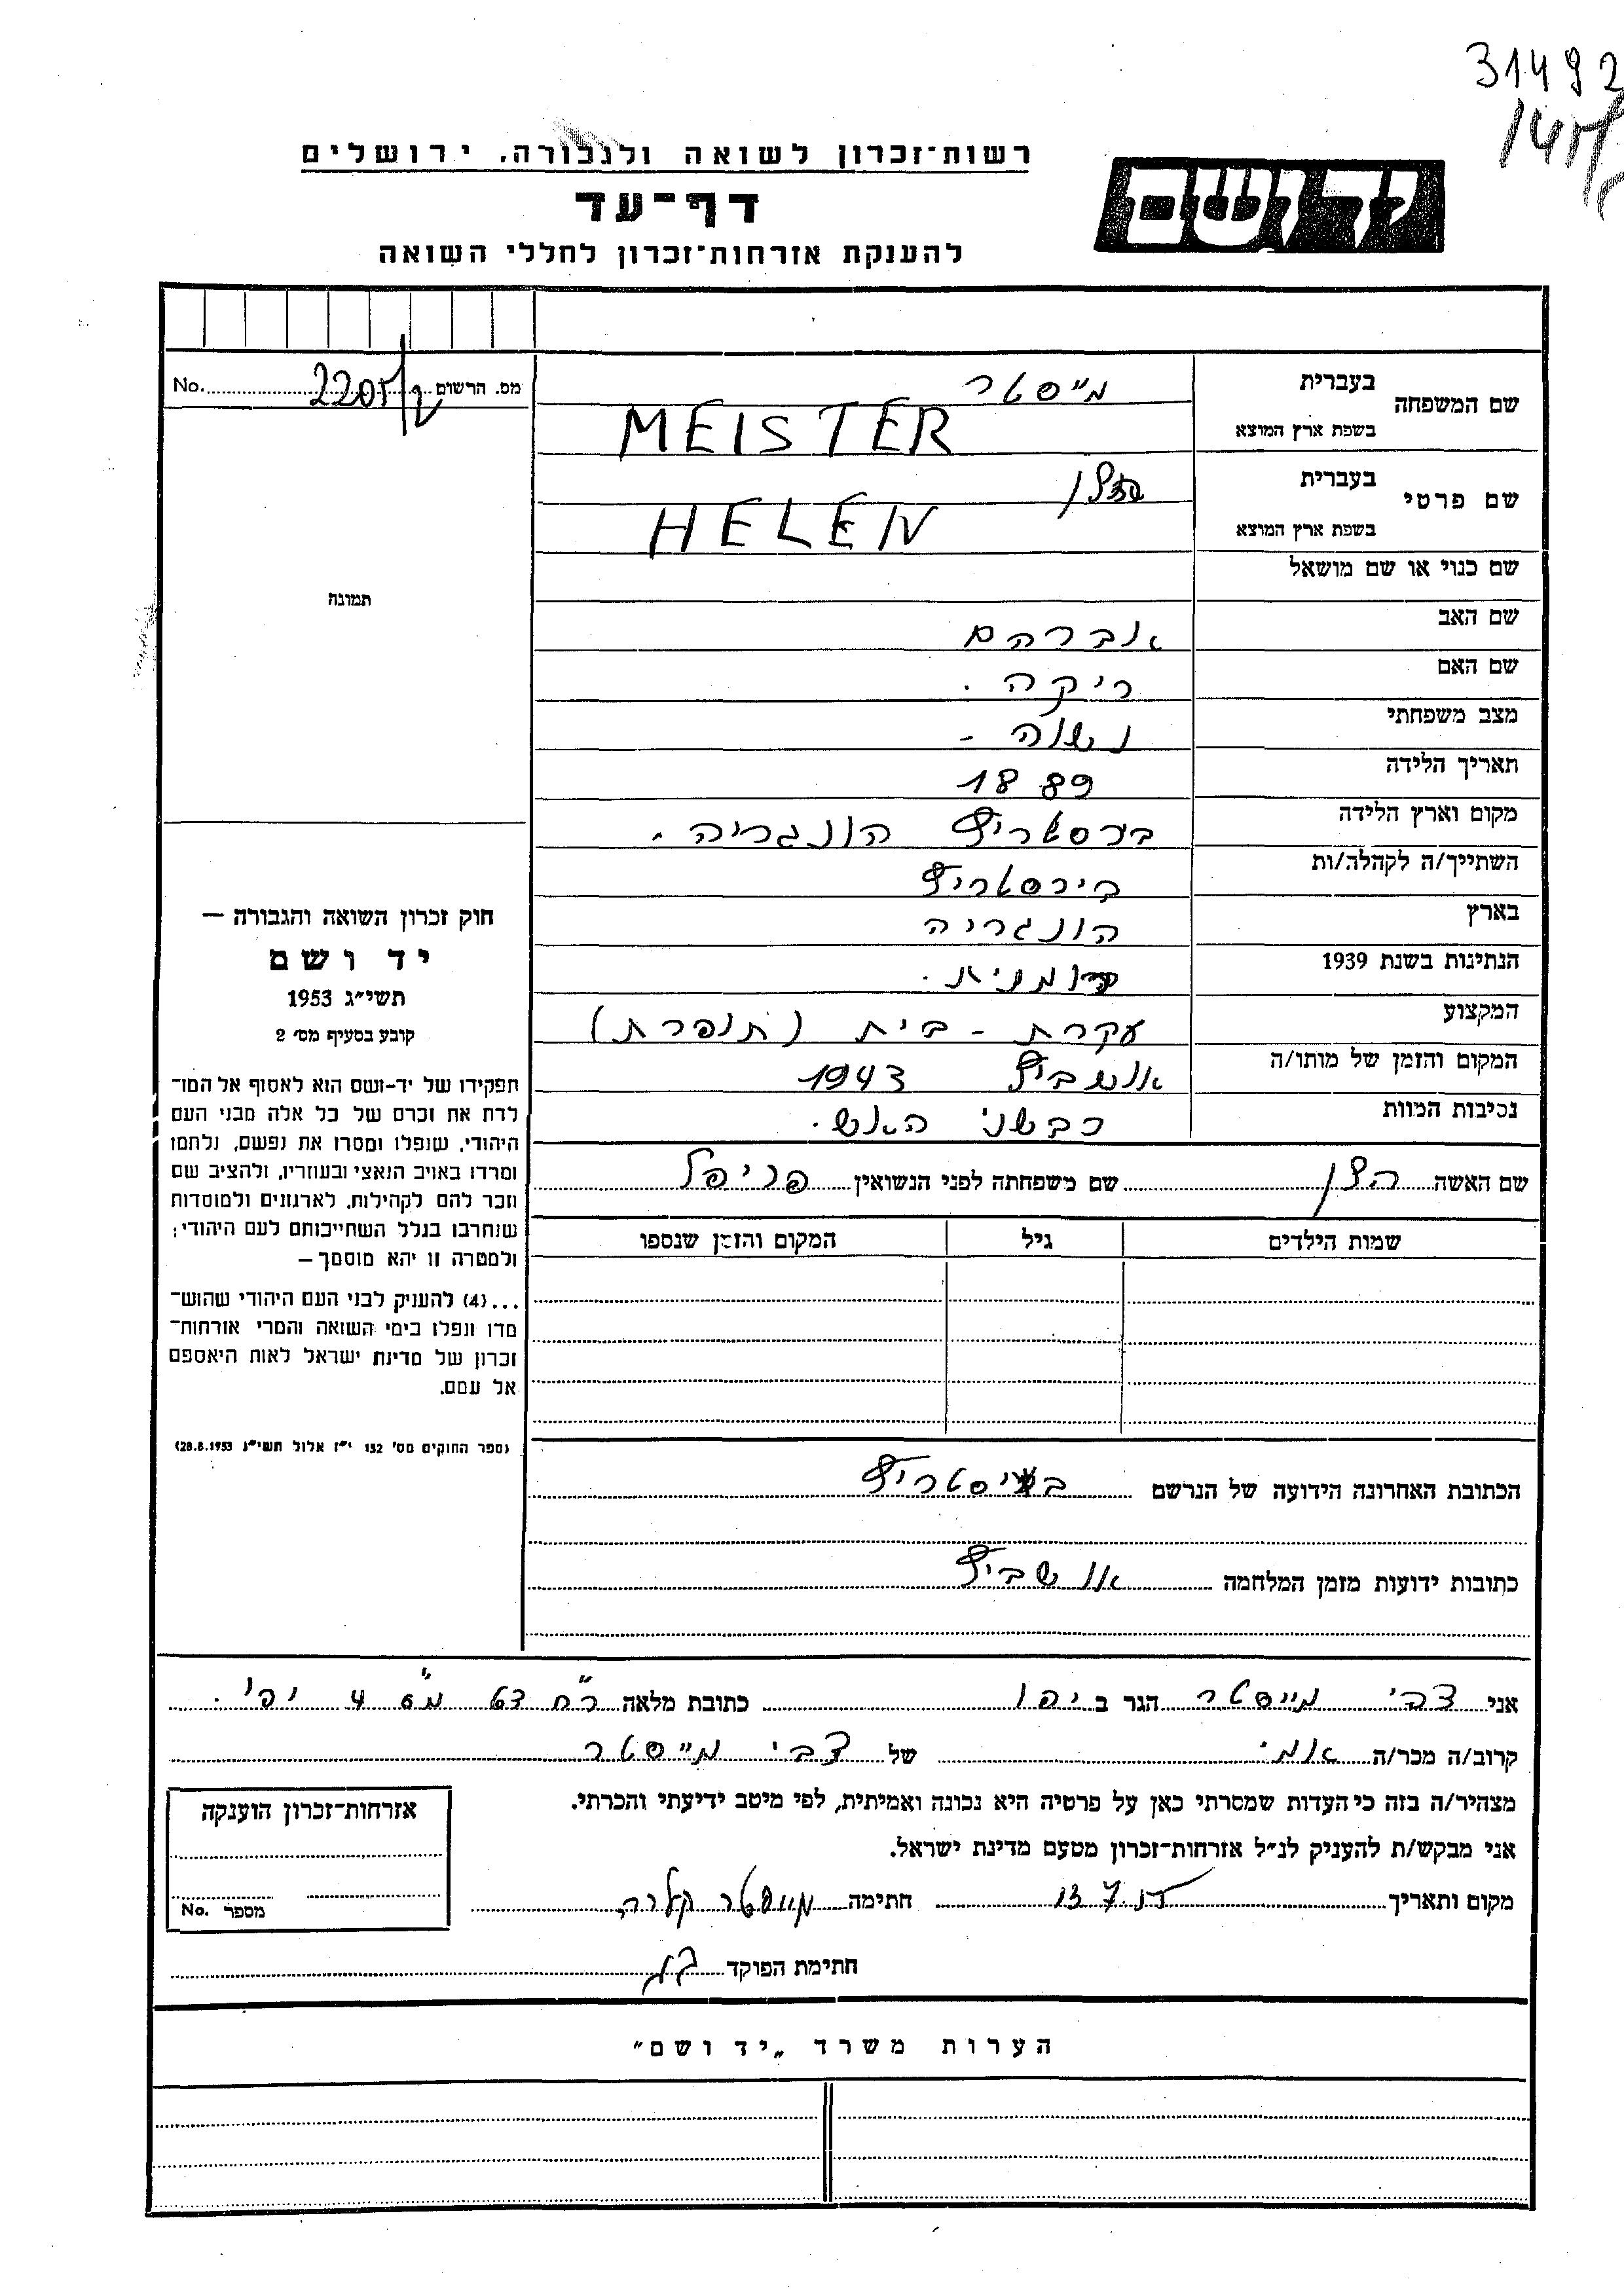 31492
רשות־זכרון לשואה ולגבורה, ירושלים
יד ושם
דף־עד
להענקת אזרחות־זכרון לחללי השואה
שם המשפחה בעברית מייסטר
בשפת ארץ המוצא MEISTER
מס. הרשום No.
שם פרטי בעברית הלן
בשפת ארץ המוצא HELEN
שם כנוי או שם מושאל
תמונה
שם האב אברהם
שם האם ריקה .
מצב משפחתי נשואה -
תאריך הלידה 1889
מקום וארץ הלידה הונגריה .
השתייך/ה לקהלה/ות ביסטריץ
בארץ הונגריה
הנתינות בשנת 1939 רומניא .
המקצוע עקרת - בית (תופרת)
המקום והזמן של מותו/ה אושביץ 1943
נסיבות המוות כבשני האש.
שם האשה הלן שם משפחתה לפני הנשואין
שמות הילדים גיל המקום והזמן שנספו
הכתובת האחרונה הידועה של הנרשם ביסטריץ
כתובות ידועות מזמן המלחמה אושביץ
חוק זכרון השואה והגבורה —
יד ושם
תשי״ג 1953
קובע בסעיף מס׳ 2
תפקידו של יד-ושם הוא לאסוף אל המו־
לדת את זכרם של כל אלה מבני העם
היהודי, שנפלו ומסרו את נפשם, נלחמו
ומרדו באויב הנאצי ובעוזריו, ולהציב שם
וזכר להם לקהילות, לארגונים ולמוסדות
שנחרבו בגלל השתייכותם לעם היהודי;
ולמטרה זו יהא מוסמך —
...(4) להענק לבני העם היהודי שהוש־
מדו ונפלו בימי השואה והמרי אזרחות־
זכרון של מדינת ישראל לאות היאספם
אל עמם.
(ספר החוקים מס׳ 132 י״ז אלול תשי״ג 28.8.1953)
אני צבי מייסטר הגר ב יפו כתובת מלאה רח 4 יפו .
קרוב/ה מכר/ה אמי של צבי מייסטר
מצהיר/ה בזה כי העדות שמסרתי כאן על פרטיה היא נכונה ואמיתית, לפי מיטב ידיעתי והכרתי.
אני מבקש/ת להעניק לנ״ל אזרחות־זכרון מטעם מדינת ישראל.
מקום ותאריך חתימה מייסטר קלרה
חתימת הפוקד
אזרחות־זכרון הוענקה
מספר No.
הערות משרד „יד ושם״